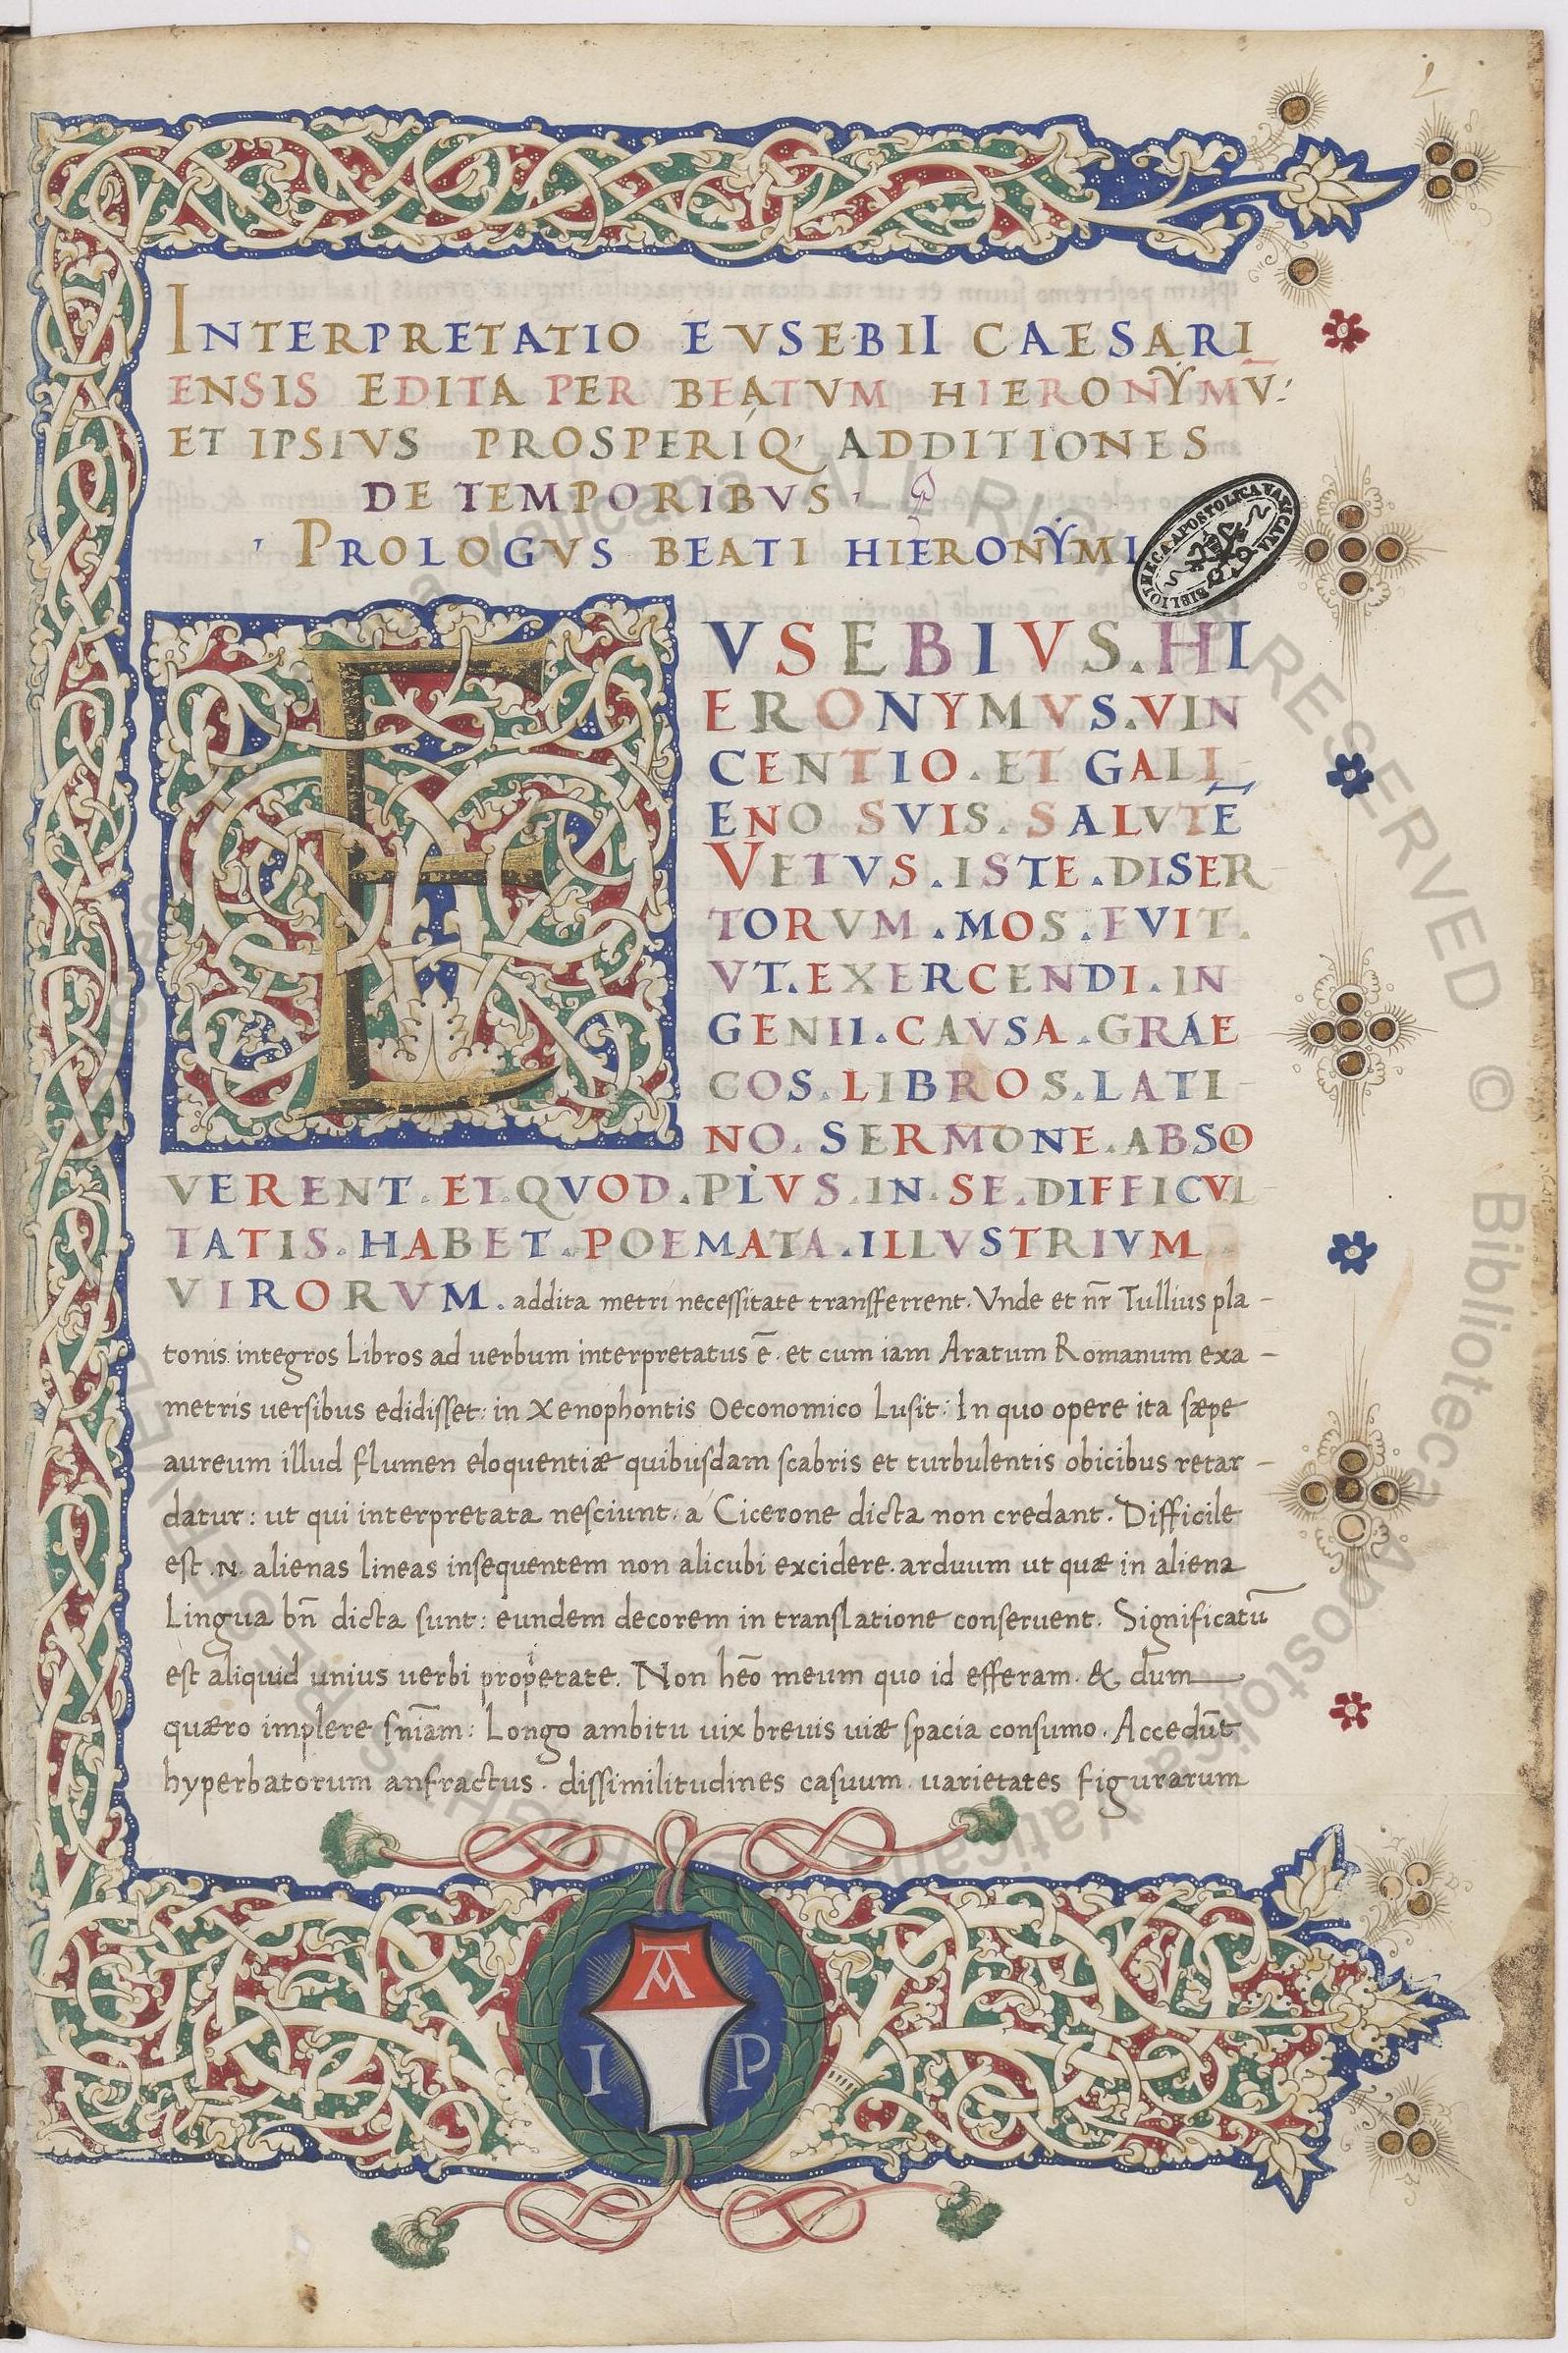 INTERPRETATIO EVSEBII CAESARI
ENSIS EDITA PER BEATVM HIERONYMV̄:
ET IPSIVS PROSPERIQ, ADDITIONES
DE TEMPORIBVS.
PROLOGVS BEATI HIERONYMI
EVSEBIVS.HI
ERONYMVS.VIN
CENTIO.ET GALLI
ENO SVIS.SALVTĒ
VETVS.ISTE.DISER
TORVM.MOS.FVIT.
VT.EXERCENDI.IN
GENII.CAVSA.GRAE
COS.LIBROS.LATI
NO.SERMONE.ABSOL
VERENT.ET.QVOD.PLVS.IN.SE.DIFFICVL
TATIS.HABET.POEMATA.ILLVSTRIVM
VIRORVM. addita metri necessitate transferrent. Vnde et nr̄ Tullius pla-
tonis integros Libros ad uerbum interpretatus ē. et cum iam Aratum Romanum exa-
metris uersibus edidisset: in Xenophontis Oeconomico Lusit: In quo opere ita sæpe
aureum illud flumen eloquentiæ quibusdam scabris et turbulentis obicibus retar-
datur: ut qui interpretata nesciunt. a Cicerone dicta non credant. Difficile
est .N. alienas lineas insequentem non alicubi excidere. arduum ut quæ in aliena
Lingua bn̄ dicta sunt: eundem decorem in translatione conseruent. Significatū
est aliquid unius uerbi propietate. Non heō meum quo id efferam. & dum
quæro implere sn̄iam: Longo ambitu uix breuis uiæ spacia consumo. Accedūt
hyperbatorum anfractus. dissimilitudines casuum. uarietates figurarum
I P
BIBLIOTHECA APOSTOLICA VATICANA
© Biblioteca Apostolica Vaticana
ALL RIGHTS RESERVED